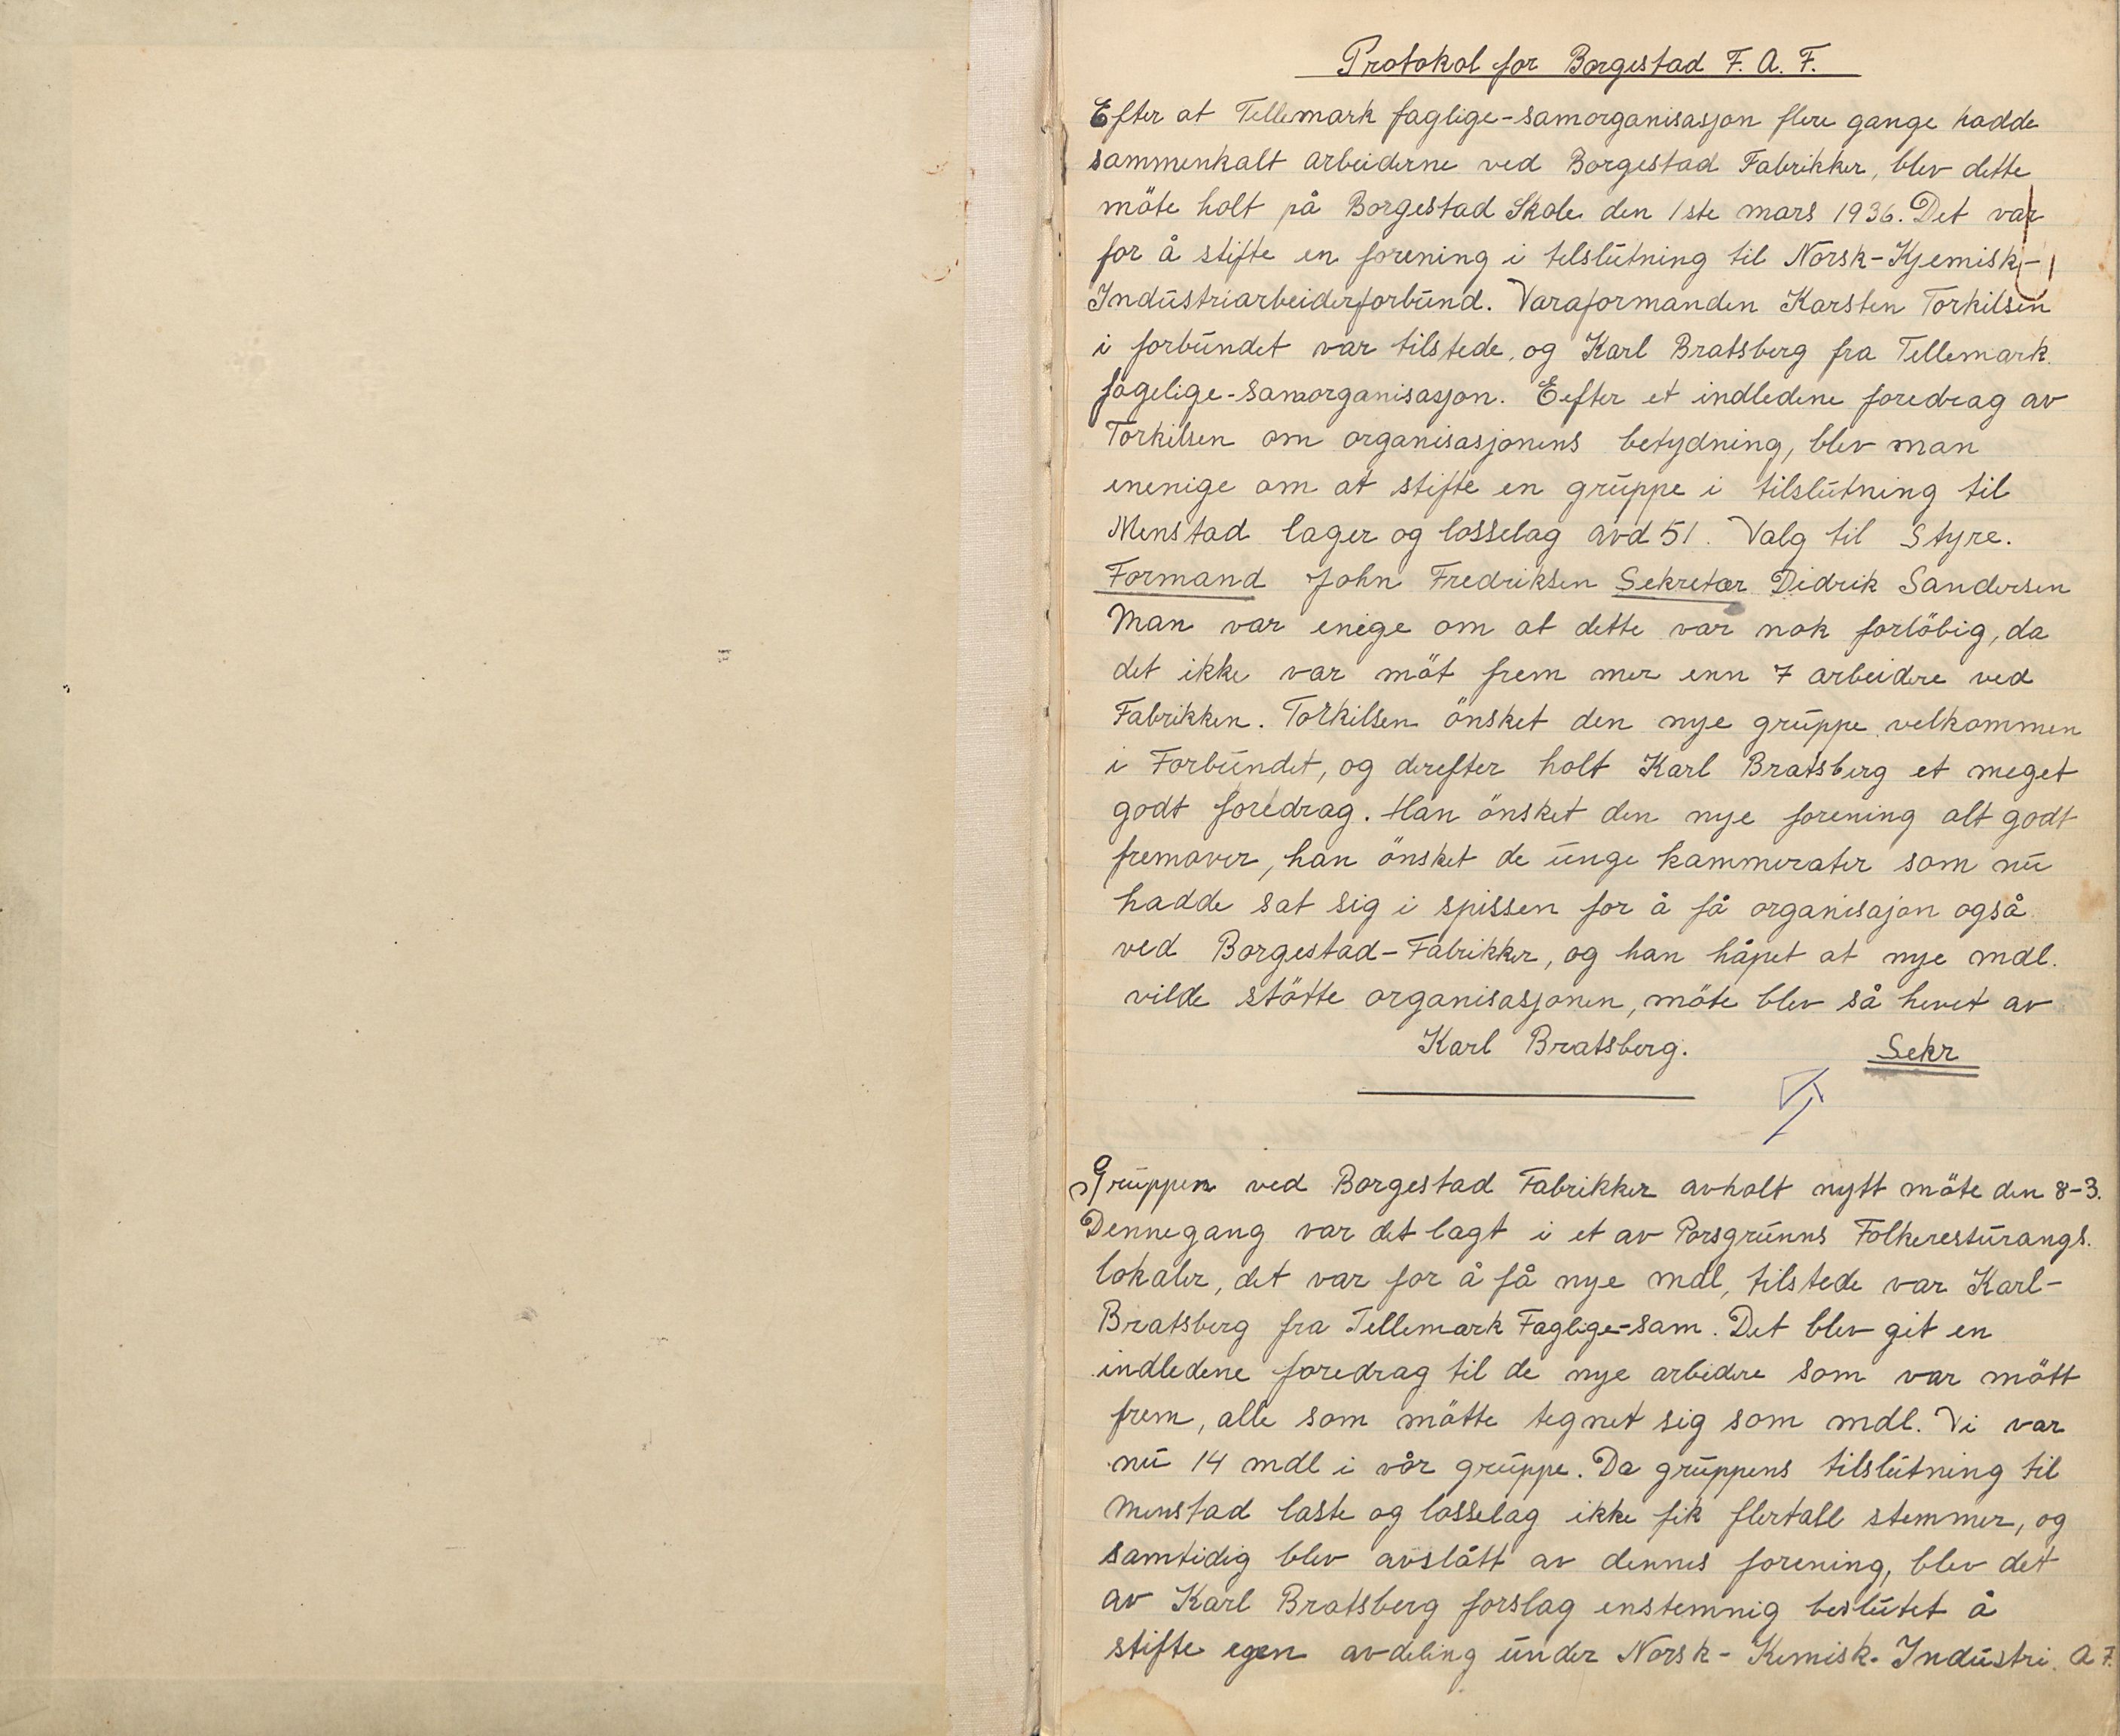 Protokol for Borgestad F. A. F.
Efter at Tellemark faglige-samorganisasjon flere gange hadde
sammenkalt arbeiderne ved Borgestad Fabrikker, blev dette
möte holt på Borgestad Skole den 1ste mars 1936. Det var
for å stifte en forening i tilslutning til Norsk-Kjemisk-
Industriarbeiderforbund. Varaformanden Karsten Torkilsen
i forbundet var tilstede, og Karl Bratsberg fra Tellemark
fagelige-samorganisasjon. Eefter et indledene foredrag av
Torkilsen om organisasjonens betydning, blev man
enenige om at stifte en gruppe i tilslutning til
Menstad lager og losselag avd 51. Valg til Styre.
Formand John Fredriksen Sekretær Didrik Sandersen
Man var enige om at dette var nok forlöbig, da
det ikke var möt frem mer enn 7 arbeidere ved
Fabrikken. Torkilsen önsket den nye gruppe velkommen
i Forbundet, og derefter holt Karl Bratsberg et meget
godt foredrag. Han önsket den nye forening alt godt
fremover, han önsket de unge kammerater som nu
hadde sat sig i spissen for å få organisajon også
ved Borgestad-Fabrikker, og han håpet at nye mdl.
vilde stötte organisasjonen, möte blev så hevet av
Karl Bratsberg. Sekr
Gruppen ved Borgestad Fabrikker avholt nytt möte den 8-3.
Dennegang var det lagt i et av Porsgrunns Folkeresturangs.
lokaler, det var for å få nye mdl, tilstede var Karl-
Bratsberg fra Tellemark Faglige-sam. Det blev git en
indledene foredrag til de nye arbeidere som var mött
frem, alle som mötte tegnet sig som mdl. Vi var
nu 14 mdl i vår gruppe. Da gruppens tilslutning til
Menstad laste og losselag ikke fik flertall stemmer, og
samtidig blev avslått av dennes forening, blev det
av Karl Bratsberg forslag enstemnig beslutet å
stifte egen avdeling under Norsk-Kemisk-Industri. A F.